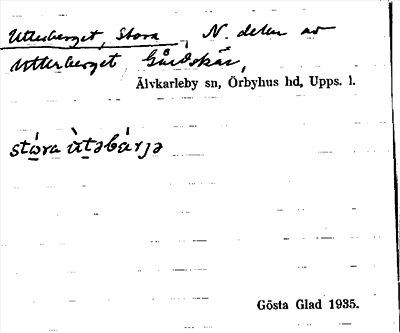 Utterberget, Stora, N. delen av
Utterberget, Gårdskär,
Älvkarleby sn, Örbyhus hd, Upps. l.
stó̱ra ùṯəbárjə
Gösta Glad 1935.